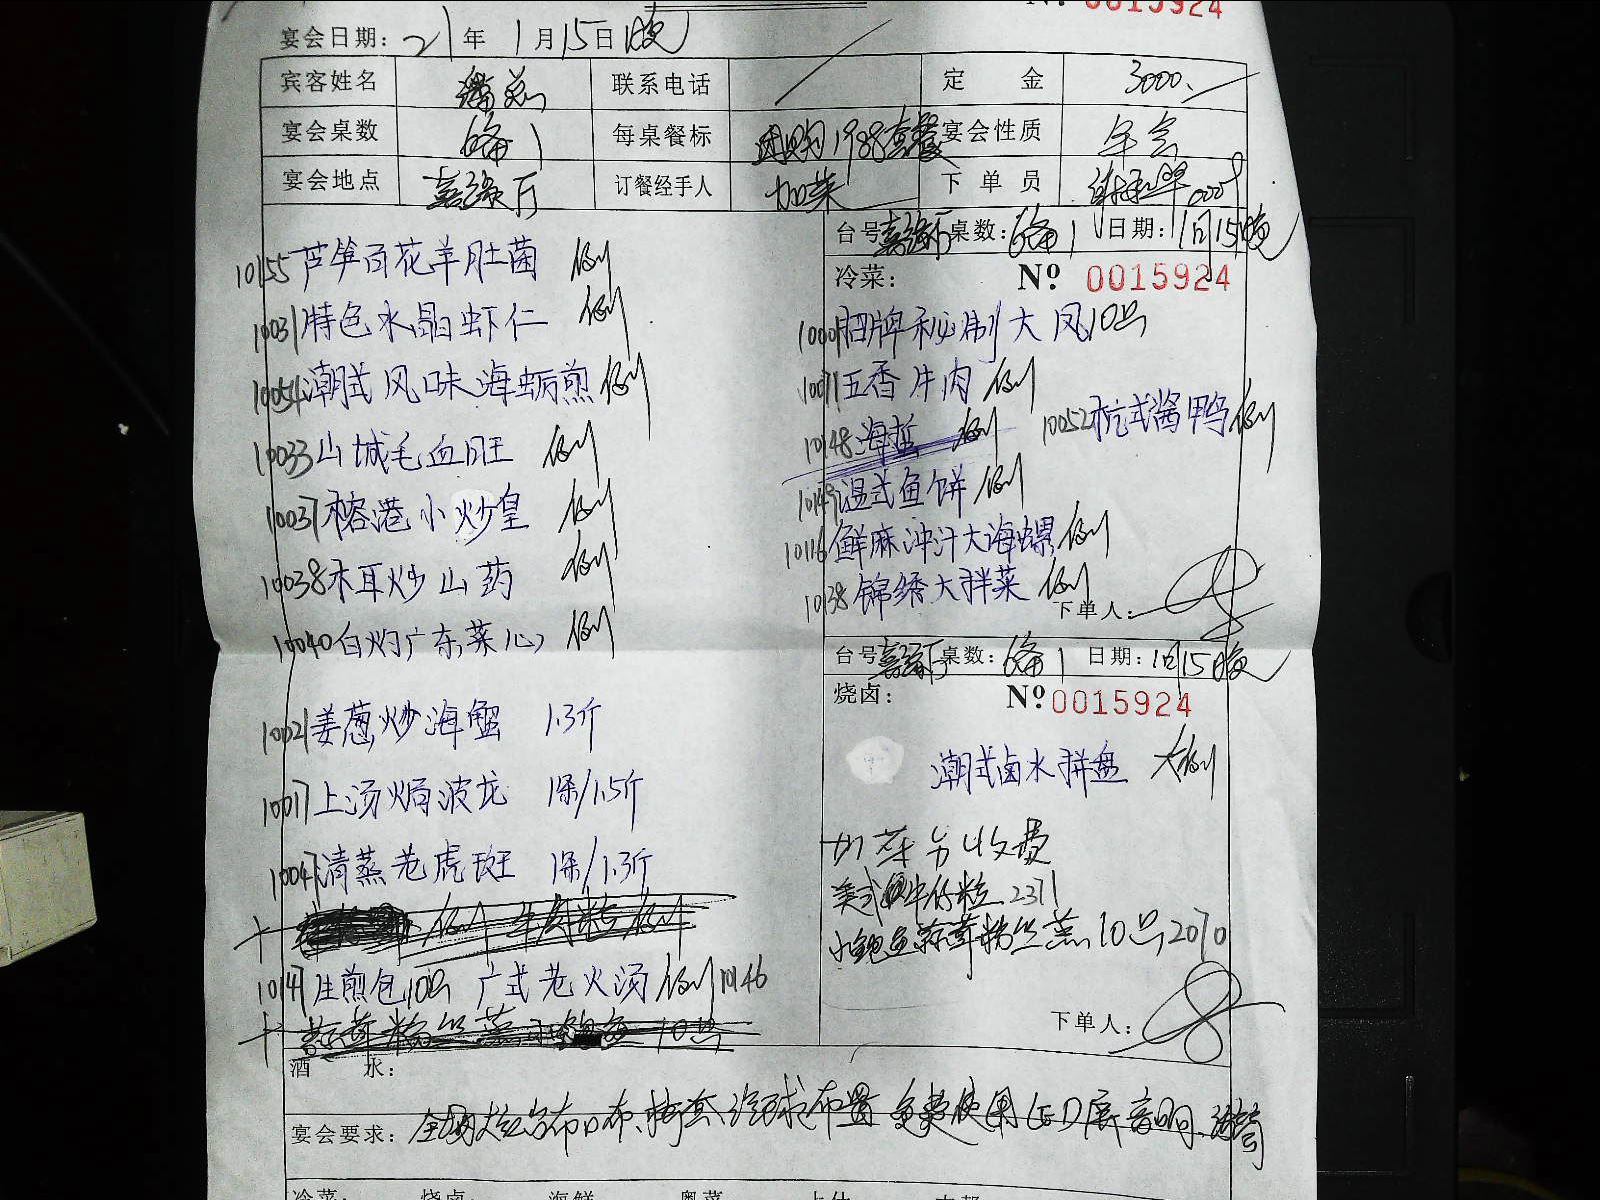 No. 0015924
宴会日期: 21年 1月15日晚
宾客姓名 潘总 联系电话 定 金 3000.
宴会桌数 6备1 每桌餐标 团购1988套餐 宴会性质 年会
宴会地点 嘉强厅 订餐经手人 加菜 下单员 0009
台号 嘉强厅 桌数: 6备1 日期: 1月15晚
冷菜: Nº 0015924
10155 芦笋百花羊肚菌 例
10031 特色水晶虾仁 例
10054 潮式风味海蛎煎 例
10033 山城毛血旺 例
10037 榕港小炒皇 例
10038 木耳炒山药 例
10040 白灼广东菜心 例
10021 姜葱炒海蟹 1.3斤
10017 上汤焗波龙 1条/1.5斤
10047 清蒸老虎斑 1条/1.3斤
十 例 牛肉粒 例
10147 生煎包10只 广式老火汤 例 10146
十 蒜蓉粉丝蒸小鲍鱼 10只
10001 招牌秘制大凤10只
10071 五香牛肉 例
10148 海蜇 例 10052 杭式酱鸭 例
10149 温式鱼饼 例
10116 鲜麻冲汁大海螺 例
10138 锦绣大拌菜 例
下单人:
台号 嘉强厅 桌数: 6备1 日期: 1月15晚
烧卤: Nº 0015924
潮式卤水拼盘 大例
加菜另收费
美式牛仔粒 2371
小鲍鱼蒜蓉粉丝蒸10只 2070
下单人:
酒 水:
宴会要求: 台布口布、椅套、气球布置 免费使用LED屏音响、
冷菜: 烧卤: 海鲜 粤菜 上什